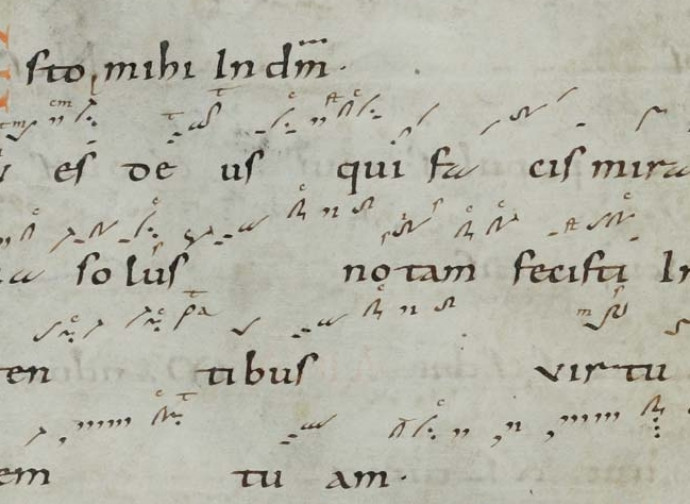 sto mihi In dm̅·
es de us qui fa cis mira
so lus no tam fecisti In
en tibus vir tu
em tu am·